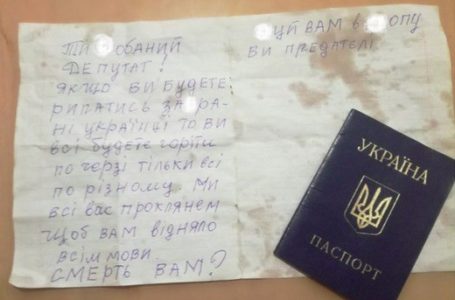 ТИ ОБАНИЙ
ДЕПУТАТ!
ЯКЩО ВИ БУДЕТЕ
РИПАТИСЬ ЗА РА-
НІ УКРАЇНЦІ ТО ВИ
ВСІ БУДЕТЕ ГОРІТИ
ПО ЧЕРЗІ ТІЛЬКИ ВСІ
ПО РІЗНОМУ. МИ
ВСІ ВАС ПРОКЛЯНЕМ
ЩОБ ВАМ ВІДНЯЛО
ВСІМ МОВИ.
СМЕРТЬ ВАМ?
ВАМ В ОПУ
ВИ ПРЕДАТЕЛІ
УКРАЇНА
ПАСПОРТ